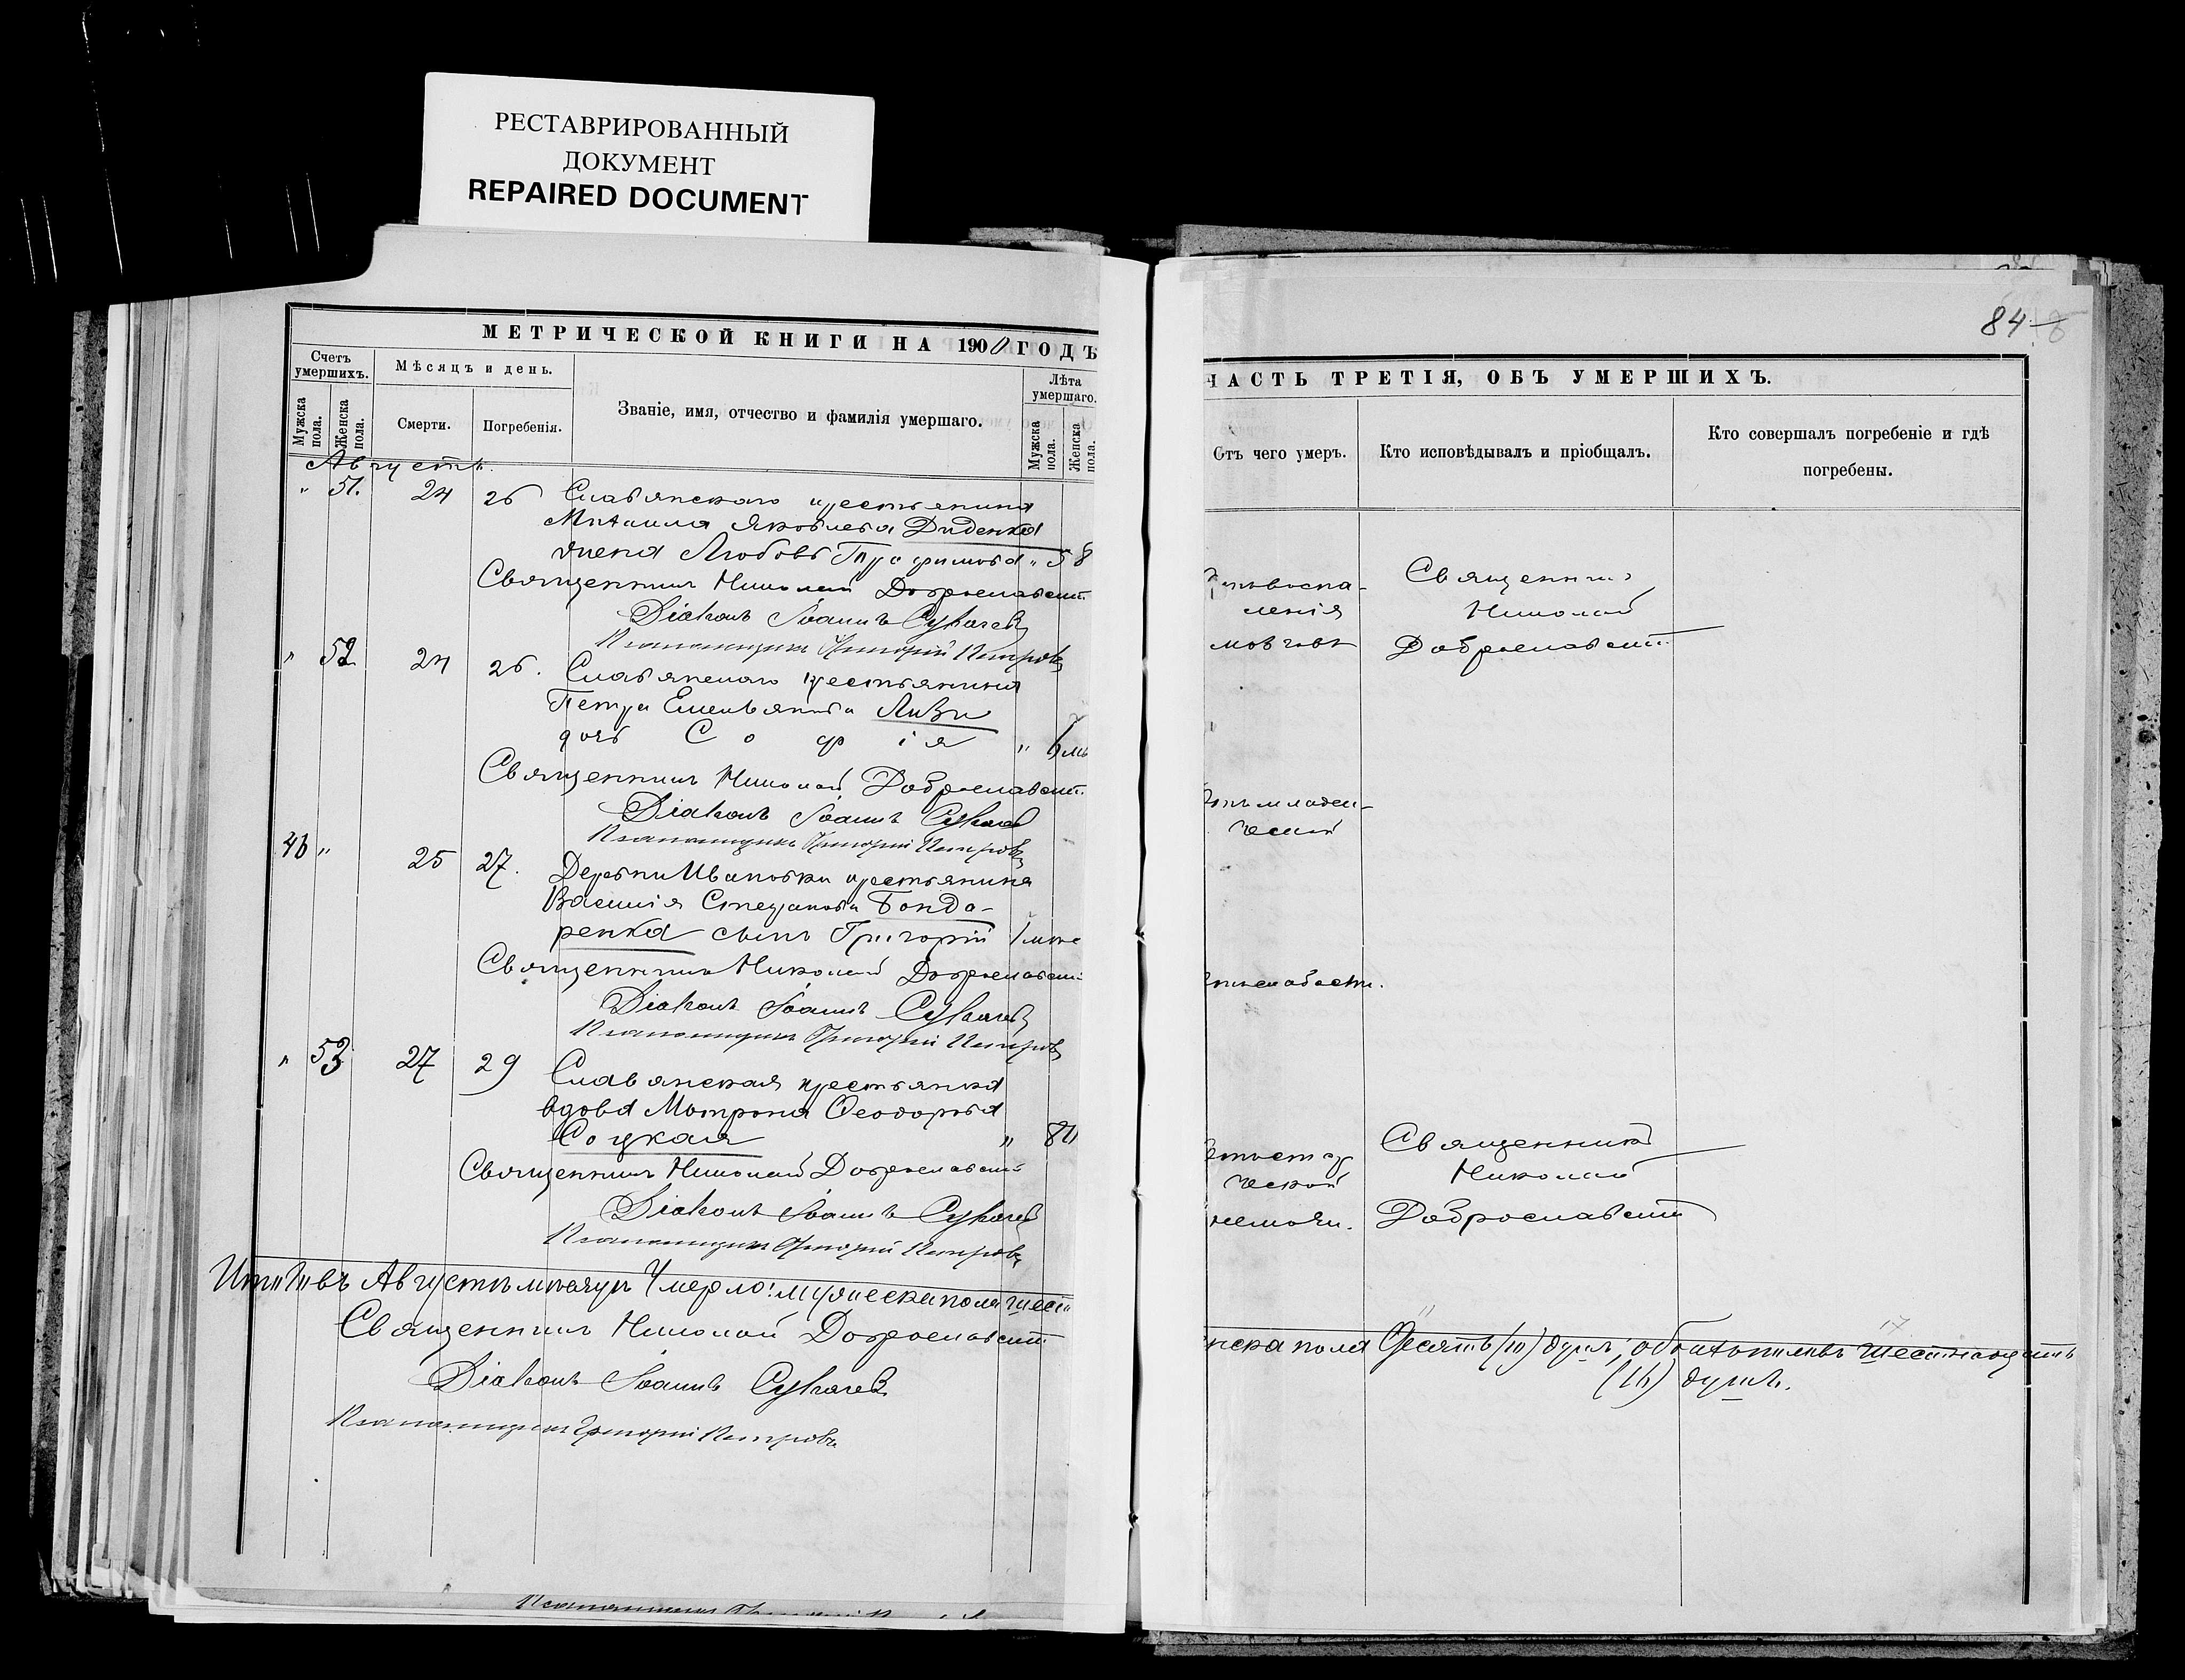 РЕСТАВРИРОВАННЫЙ
ДОКУМЕНТ
REPAIRED DOCUMENT
МЕТРИЧЕСКОЙ КНИГИ НА 1900 ГОДЪ
Счетъ умершихъ.
Мужска пола.
Женска пола.
Мѣсяцъ и день.
Смерти.
Погребенія.
Званіе, имя, отчество и фамилія умершаго.
Лѣта умершаго.
Мужска пола.
Женска пола.
Августъ.
" 51. 24 26 Славянскаго крестьянина
Михаила Яковлева Диденка
жена Любовь Трофимова " 58
Священникъ Николай Доброславскій
Діаконъ Іоаннъ
Псаломщикъ Григорій Петровъ
" 52 24 26. Славянскаго крестьянина
Петра Емельянова
дочь Софія " 6 мѣ
Священникъ Николай Доброславскій
Діаконъ Іоаннъ
Псаломщикъ Григорій Петровъ
46 " 25 27. Деревни Ивановки крестьянина
Василія Степанова Бондо-
ренка сынъ Григорій 1 мѣс
Священникъ Николай Доброславскій
Діаконъ Іоаннъ
Псаломщикъ Григорій Петровъ
" 53 27 29 Славянская крестьянка
вдова Матрона Ѳеодорова
Соцкая " 80
Священникъ Николай Доброславскій
Діаконъ Іоаннъ
Псаломщикъ Григорій Петровъ
Итого въ Августѣ мѣсяцѣ Умерло: мужеска пола шест
Священникъ Николай Доброславскій
Діаконъ Іоаннъ
Псаломщикъ Григорій Петровъ
84
ЧАСТЬ ТРЕТІЯ, ОБЪ УМЕРШИХЪ.
Отъ чего умеръ.
Кто исповѣдывалъ и пріобщалъ.
Кто совершалъ погребеніе и гдѣ погребены.
воспа-
ленія
Священникъ
Николай
Доброславскій
младен-
ческой
слабости.
старч
ческой
немощи.
Священникъ
Николай
Доброславскій
17
нска пола десять (10) душъ, обоихъ половъ шестнадцать
(16) душъ.